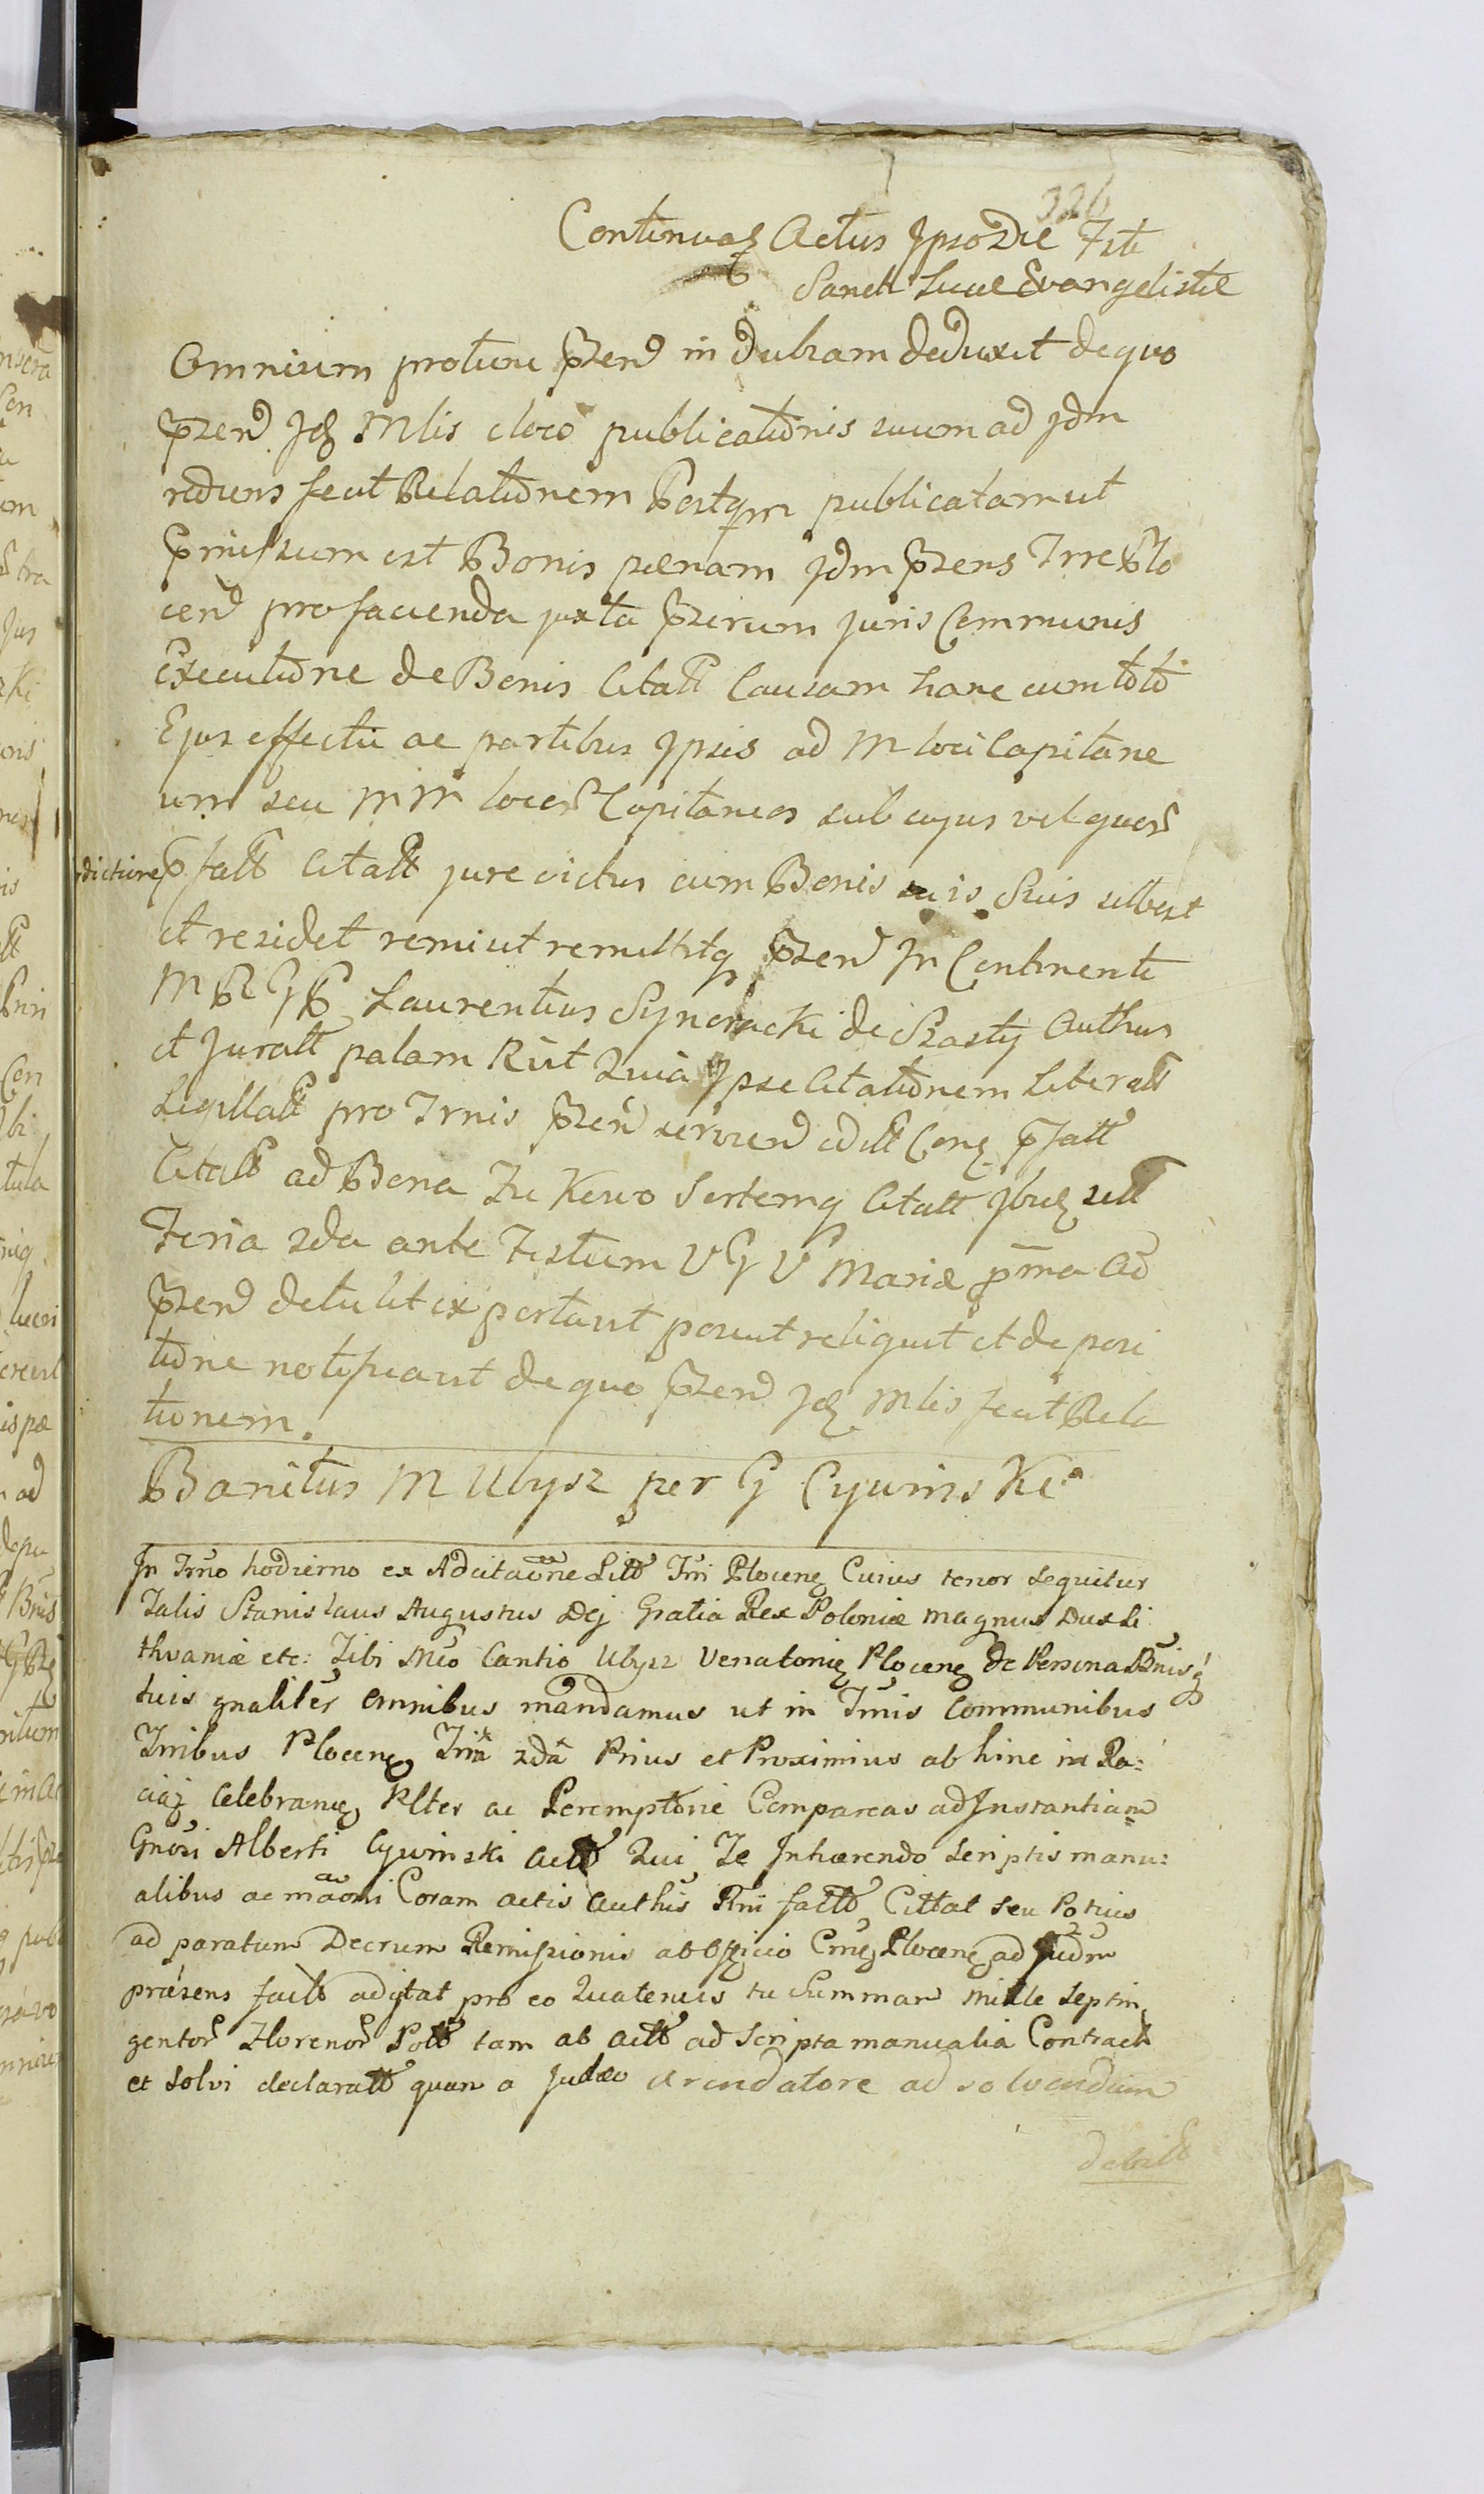 326
Continuaō Actus Ipso Die Fsti
Sancti Lucae Evangelistae
Omnium protunc przen in dubiam deduxit de quo
przen Idq Mlis e loco publicationis suum ad Jdm
rediens fecit Relationem Postqm publicatam ut
pmissum est Bonis paenam Jdm przens Trre Plo
cen pro facienda juxta przirum juris Communis
Executione de Bonis Citatt Causam hanc cum toto
Ejus effectu ac partibus Ipsis ad M loci Capitane
um seu MM locor Capitaneos sub cujus vel quor
dictione p fatt Citatt jure victus cum Bonis suis Suis subest
et residet remisit remittitq przen In Continenti
M R G P Laurentius Syneracki de Szasty Authus
et Juratt palam Rūt Quia Ipse Citationem Literatt
Sigillatt pro Trnis przen servien editt Conq p fatt
Citatt ad Bona Zukowo Sortemq Citatt Ibidq sitt
Feria 2da ante Festum V G V Mariae pma ad
przen detulit exportavit posuit reliquit et de posi
tione notificavit de quo przen Idq Mlis fecit Rela
tionem.
Banitus M Ubysz per G Cywinski
In Trno hodierno ex Adcitaone Litt Tri Plocenq Cuius tenor sequitur
Talis Stanislaus Augustus Dej Gratia Rex Poloniae Magnus Dux Li
thvaniae etc: Tibi Mco Cantio Ubysz Venatoriq Plocenq de Persona Bnisq
tuis gnaliter omnibus mandamus ut in Trnis Communibus
Tribus Plocenq Triā 2dā Prius et Proximius abhinc in Ra:
ciąz Celebranq Plter ac Peremptorie Compareas ad Instantiam
Gnosi Alberti Cywinski Actt Qui Te Inhaerendo Scriptis manu:
alibus ac maōni Coram actis Authis Rni factt Cittat seu Potius
ad paratum Decrum Remissionis ab Officio Crnq Plocenq ad Judm
praesens factt adcitat pro eo Quatenus tu Summam mille Septin
gentor Florenor Poltt tam ab actt ad Scripta manualia Contract
et Solvi declaratt quam a Judaeo Arendatore ad solvendum
debitt